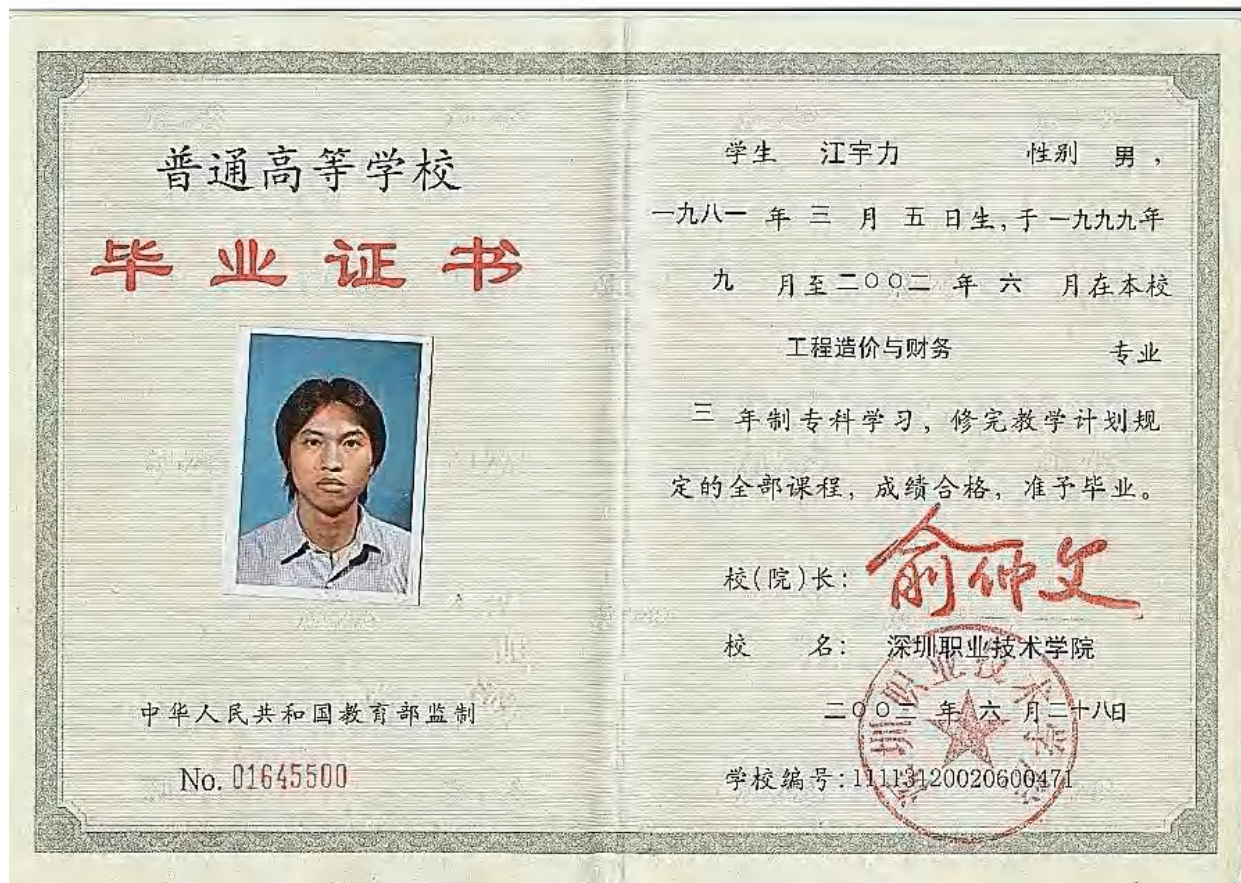 普通高等学校
毕业证书
中华人民共和国教育部监制
No. 01645500
学生 江宇力 性别 男，
一九八一 年 三 月 五 日生，于一九九九年
九 月至二〇〇二 年 六 月在本校
工程造价与财务 专业
三 年制专科学习，修完教学计划规
定的全部课程，成绩合格，准予毕业。
校(院)长：俞仲文
校 名：深圳职业技术学院
二〇〇二 年 六 月二十八日
学校编号：11113120020600471
深圳职业技术学院